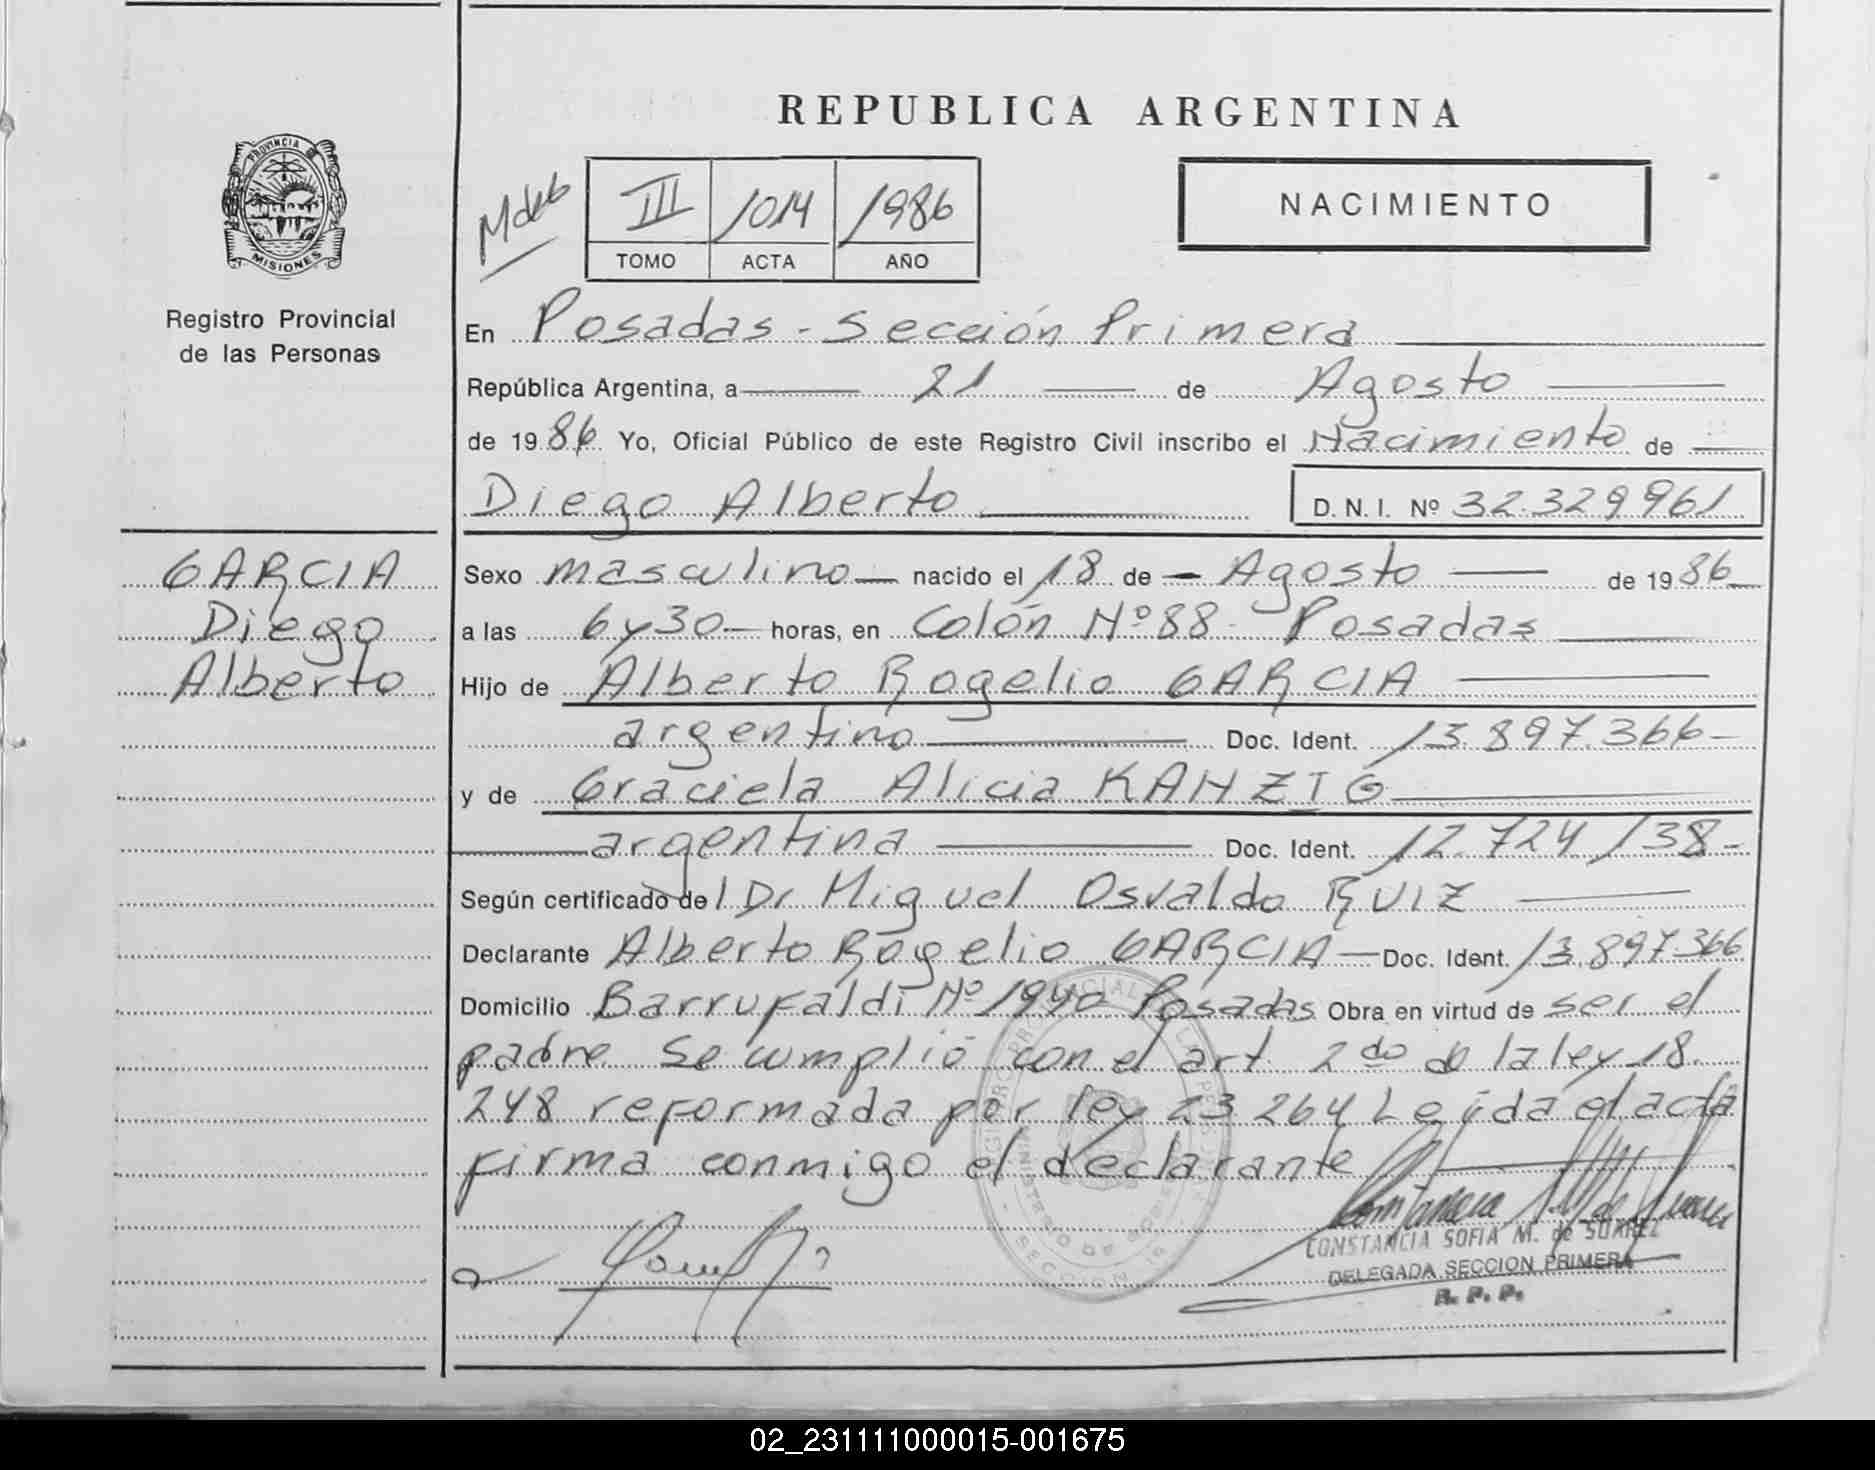 REPUBLICA ARGENTINA
PROVINCIA DE
MISIONES
Registro Provincial
de las Personas
III 1014 1986
TOMO ACTA AÑO
NACIMIENTO
En Posadas - Sección Primera
República Argentina, a 21 de Agosto
de 1986 Yo, Oficial Público de este Registro Civil inscribo el Nacimiento de
Diego Alberto D.N.I. Nº 32.329.961
GARCIA
Diego
Alberto
Sexo masculino nacido el 18 de Agosto de 1986
a las 6 y 30 horas, en Colón Nº 88 - Posadas
Hijo de Alberto Rogelio GARCIA
argentino Doc. Ident. 13.897.366-
y de Graciela Alicia KANZIG
argentina Doc. Ident. 12.724.138-
Según certificado del Dr Miguel Osvaldo RUIZ
Declarante Alberto Rogelio GARCIA - Doc. Ident. 13.897.366
Domicilio Barrufaldi Nº 1940 Posadas Obra en virtud de ser el
padre. Se cumplió con el art. 2do de la ley 18.
248 reformada por ley 23264 Leída el acta
firma conmigo el declarante
CONSTANCIA SOFIA M. de SUAREZ
DELEGADA SECCION PRIMERA
R. P. P.
02_231111000015-001675